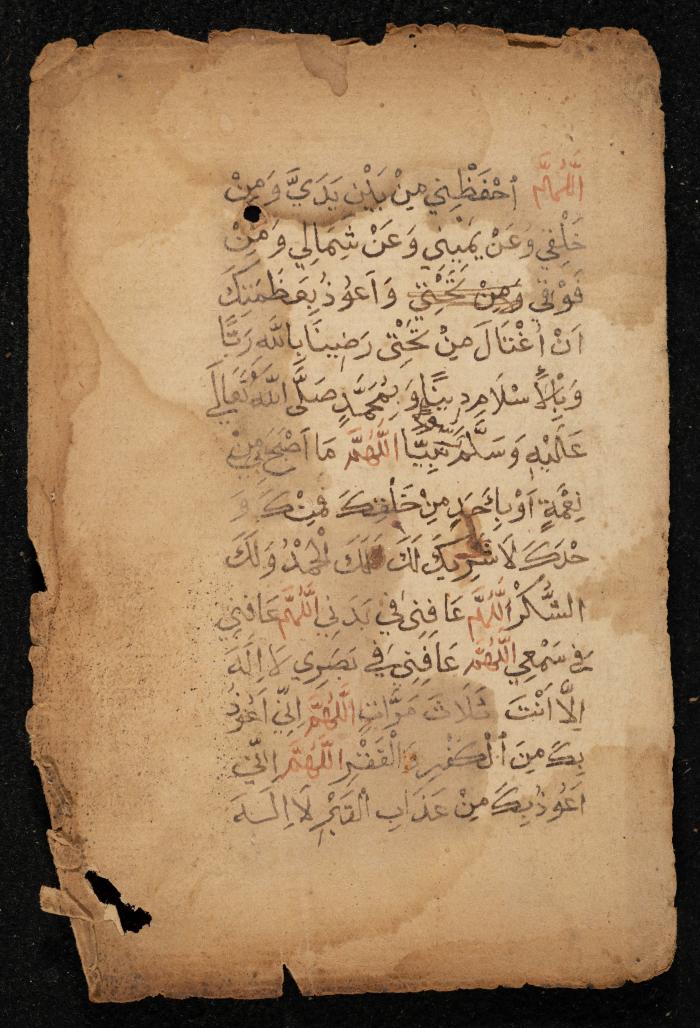 اَللّٰهُمَّ اُحْفَظْنِي مِنْ بَيْنِ يَدَيَّ وَمِنْ
خَلْفِي وَعَنْ يَمِيْنِي وَعَنْ شِمَالِي وَمِنْ
فَوْقِي وَمِنْ تَحْتِي وَاَعُوْذُ بِعَظَمَتِكَ
اَنْ اُغْتَالَ مِنْ تَحْتِى رَضِيْنَا بِاللّٰهِ رَبًّا
وَبِالْإِسْلَامِ دِيْنًا وَبِمُحَمَّدٍ صَلَّى اللّٰهُ تَعَالٰى
عَلَيْهِ وَسَلَّمَ نَبِيًّا اَللّٰهُمَّ مَا اَصْبَحَ بِي مِنْ
نِعْمَةٍ اَوْ بِاَحَدٍ مِنْ خَلْقِكَ فَمِنْكَ وَ
حْدَكَ لَا شَرِيْكَ لَكَ فَلَكَ الْحَمْدُ وَلَكَ
الشُّكْرُ اَللّٰهُمَّ عَافِنِى فِي بَدَنِي اَللّٰهُمَّ عَافِنِي
فِي سَمْعِي اَللّٰهُمَّ عَافِنِي فِي بَصَرِي لَا اِلٰهَ
اِلَّا اَنْتَ ثَلَاثَ مَرَّاتٍ اَللّٰهُمَّ اِنِّي اَعُوْذُ
بِكَ مِنَ الْكُفْرِ وَالْفَقْرِ اَللّٰهُمَّ اِنِّي
اَعُوْذُ بِكَ مِنْ عَذَابِ الْقَبْرِ لَا اِلٰهَ